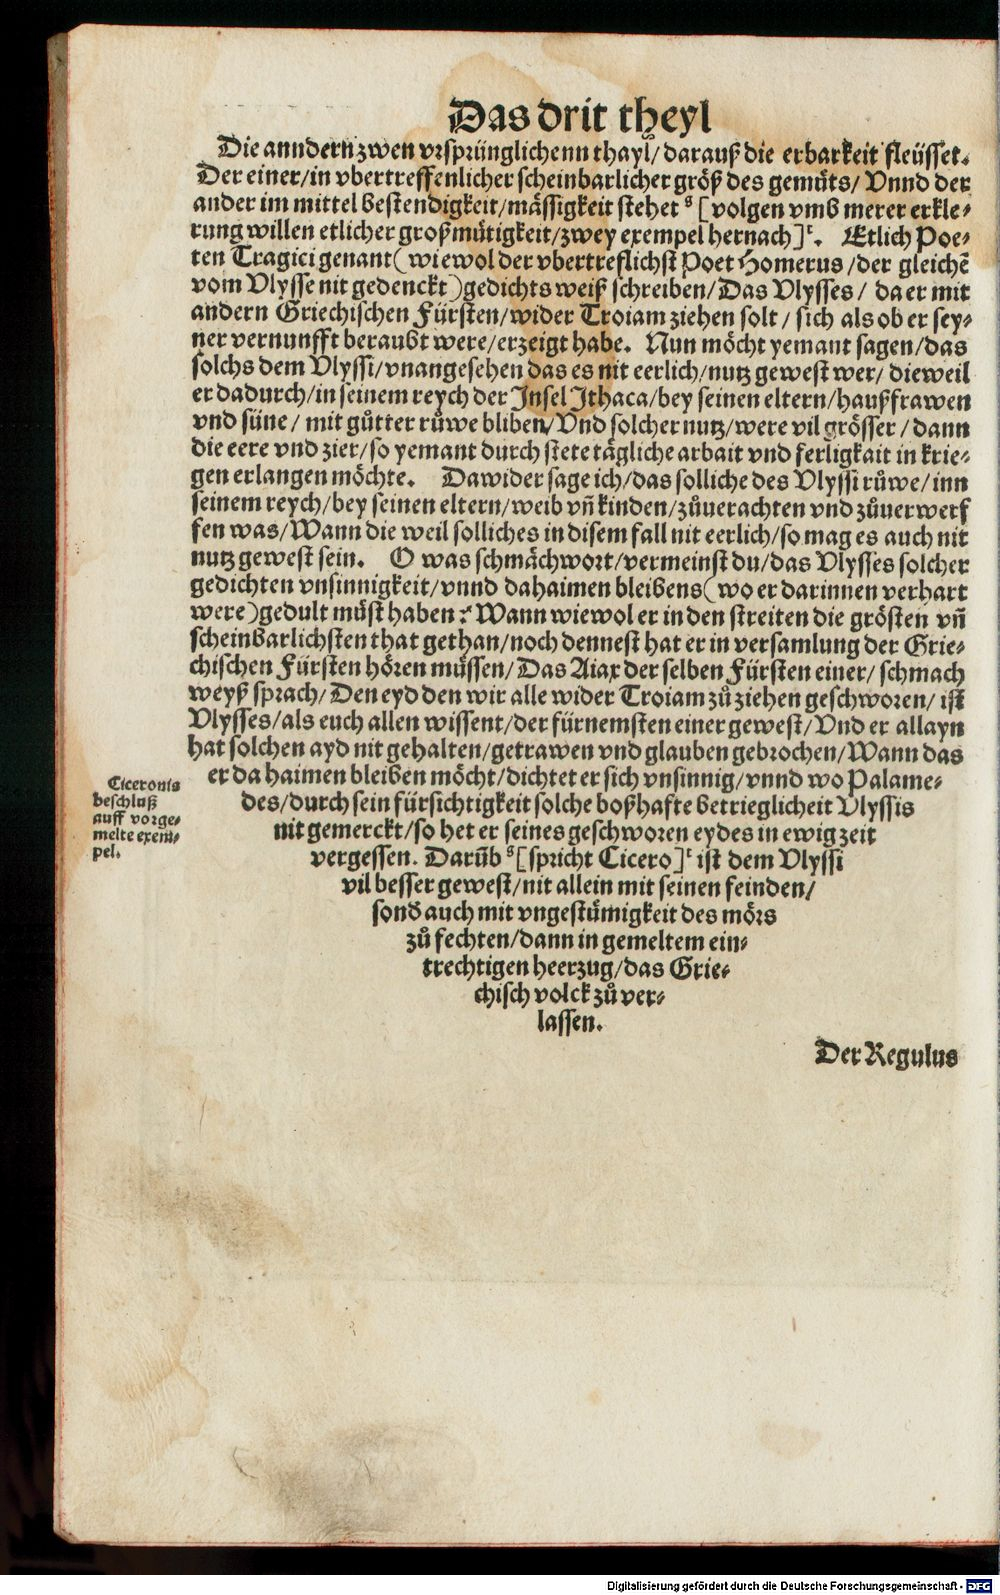 Das drit theyl
Die anndern zwen vrsprünglichenn thayl/ darauß die erbarkeit fleüsset.
Der einer/ in vbertreffenlicher scheinbarlicher größ des gemůts/ Vnnd der
ander im mittel bestendigkeit/ mässigkeit stehet ˢ[volgen vmb merer erkle⸗
rung willen etlicher großmůtigkeit/ zwey exempel hernach]ᵗ. Etlich Poe⸗
ten Tragici genant (wiewol der vbertreflichst Poet Homerus/ der gleichē
vom Vlysse nit gedenckt) gedichts weiß schreiben/ Das Vlysses/ da er mit
andern Griechischen Fürsten/ wider Troiam ziehen solt/ sich als ob er sey⸗
ner vernunfft beraubt were/ erzeigt habe. Nun möcht yemant sagen/ das
solchs dem Vlyssi/ vnangesehen das es nit eerlich/ nutz gewest wer/ dieweil
er dadurch/ in seinem reych der Insel Ithaca/ bey seinen eltern/ haußfrawen
vnd süne/ mit gůtter růwe bliben/ Vnd solcher nutz/ were vil grösser/ dann
die eere vnd zier/ so yemant durch stete tägliche arbait vnd ferligkait in krie⸗
gen erlangen möchte. Dawider sage ich/ das solliche des Vlyssi růwe/ inn
seinem reych/ bey seinen eltern/ weib vñ kinden/ zůuerachten vnd zůuerwerf
fen was/ Wann die weil solliches in disem fall nit eerlich/ so mag es auch nit
nutz gewest sein. O was schmächwort/ vermeinst du/ das Vlysses solcher
gedichten vnsinnigkeit/ vnnd dahaimen bleibens (wo er darinnen verhart
were) gedult müst haben? Wann wiewol er in den streiten die grösten vñ
scheinbarlichsten that gethan/ noch dennest hat er in versamlung der Grie⸗
chischen Fürsten hören müssen/ Das Aiax der selben Fürsten einer/ schmach
weyß sprach/ Den eyd den wir alle wider Troiam zů ziehen geschworen/ ist
Vlysses/ als euch allen wissent/ der fürnemsten einer gewest/ Vnd er allayn
hat solchen ayd nit gehalten/ getrawen vnd glauben gebrochen/ Wann das
er da haimen bleiben möcht/ dichtet er sich vnsinnig/ vnnd wo Palame⸗
des/ durch sein fürsichtigkeit solche boßhafte betrieglicheit Vlyssis
nit gemerckt/ so het er seines geschworen eydes in ewig zeit
vergessen. Darūb ˢ[spricht Cicero]ᵗ ist dem Vlyssi
vil besser gewest/ nit allein mit seinen feinden/
sonď auch mit vngestümigkeit des mörs
zů fechten/ dann in gemeltem ein⸗
trechtigen heerzug/ das Grie⸗
chisch volck zů ver⸗
lassen.
Ciceronis
beschluß
auff vorge⸗
melte exem⸗
pel.
Der Regulus
Digitalisierung gefördert durch die Deutsche Forschungsgemeinschaft - DFG